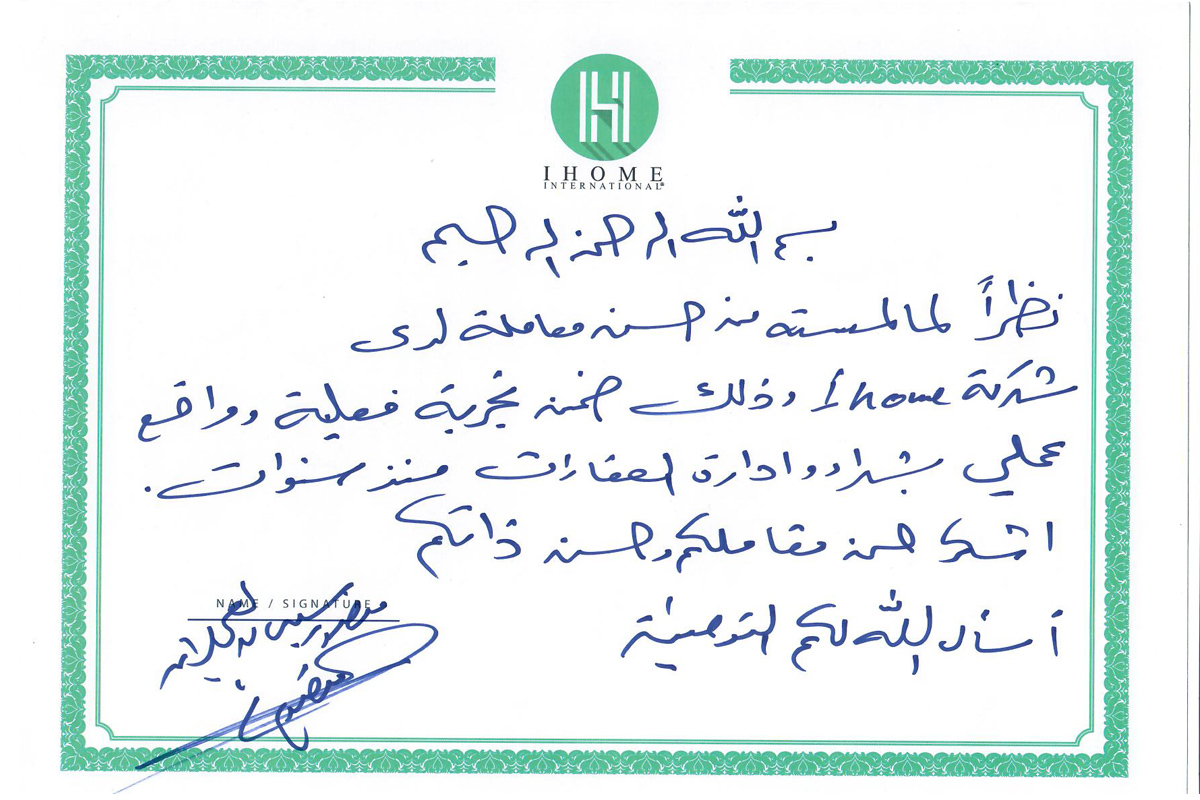 IHOME
INTERNATIONAL®
بسم الله الرحمن الرحيم
نظراً لما لمسته من حسن معاملة لدى
شركة Ihome وذلك ضمن تجربة فعلية وواقع
عملي بشراء وادارة العقارات منذ سنوات.
اشكر حسن تعاملكم وحسن ذاتكم
أسأل الله لكم التوفيق
NAME / SIGNATURE